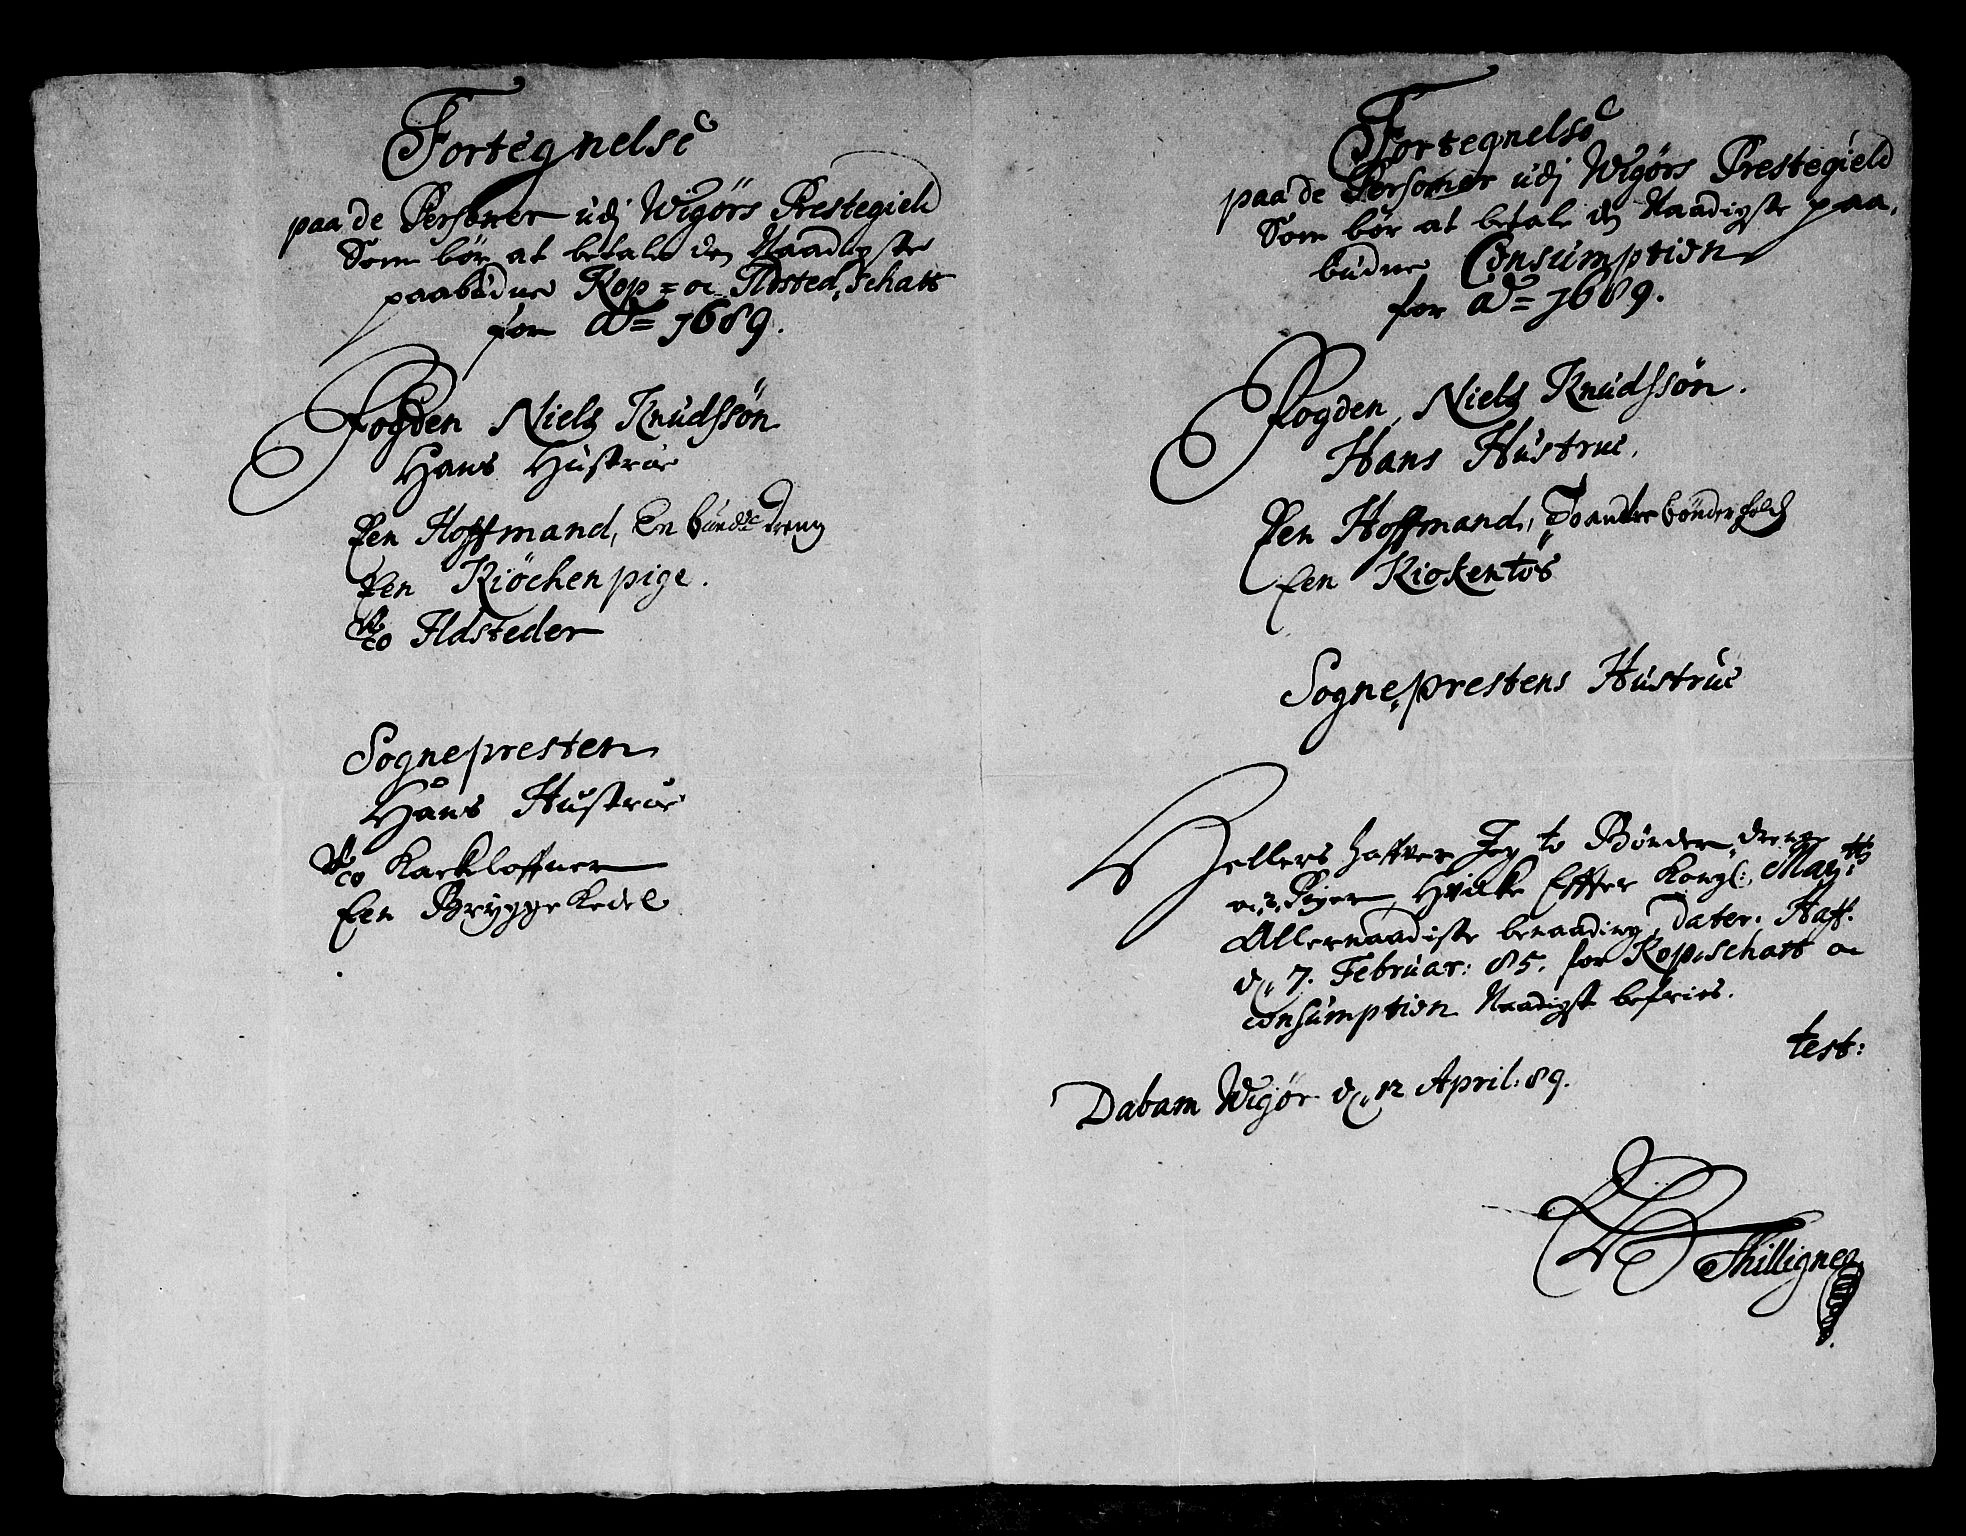 Fortegnelse
paa de Personer udj Wigørs Prestegield
Som bør at betale den Naadigste
paabudne Kop= oc Ildsted,schatt
for Ao= 1689.
Fogden Niels Knudssøn
Hans Hustrue
Een Hoffmand, En bunde dreng
Een Kiöchenpige.
To Ildsteder
Sognepresten
Hans Hustrue
To Kackloffner
Een Brygge Kedel
Fortegnelse
paa de Personer udj Wigørs Prestegield
Som bør at betale den Naadigste paa,
budne Consumption
for Ao= 1689.
Fogden, Niels Knudssøn.
Hans Hustrue,
Een Hoffmand, To andre bønder folch
Een Kiokentös
Sogne,prestens Hustrue
Hellers haffver Jeg to Bønder,drenge
oc 2. Piger, Hvilke Effter Kongl: Maytts
Allernaadiste benaading, Dater: Haff.
d. 7. Februar: 85. for Kop,schatt oc
Consumption Naadigst befries.
test:
Dabam Wigør d. 12 April: 89.
Thillignes